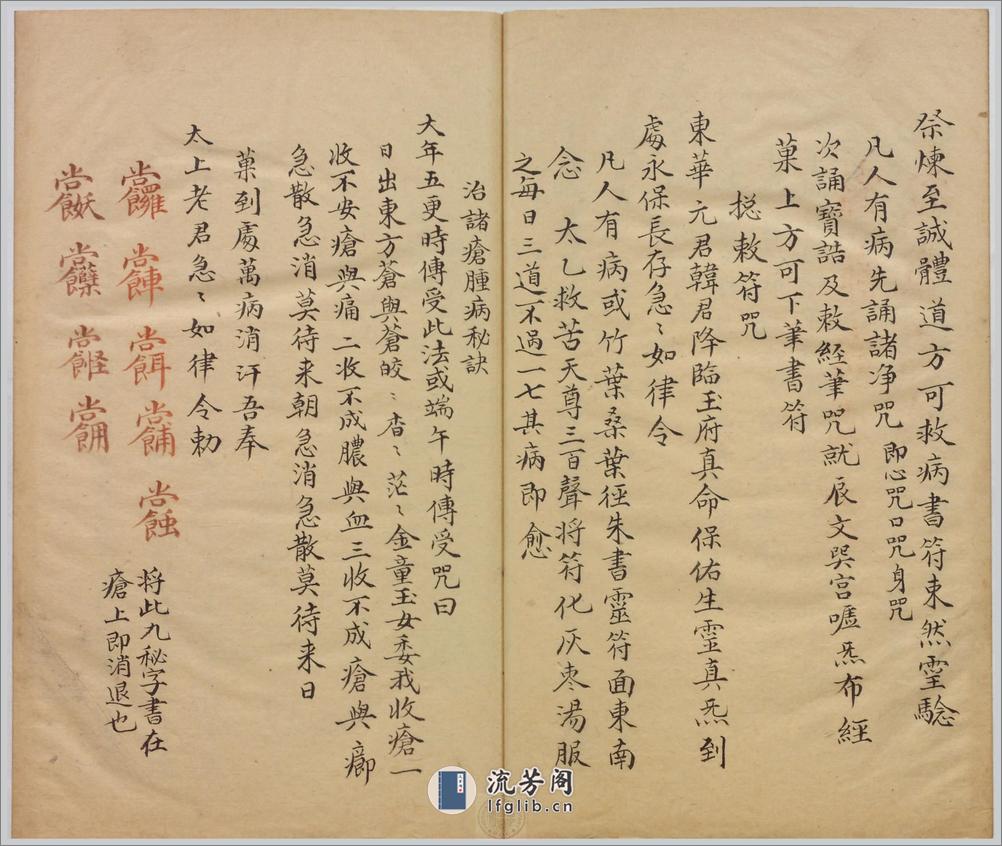 祭煉至誠體道方可救病書符東然霊驗
凡人有病先誦諸净咒 即心咒口咒身咒
次誦寶誥及敕經筆咒就辰文巽宮噓炁布經
菓上方可下筆書符
捴敕符咒
東華元君韓君降臨玉府真命保佑生靈真炁到
處永保長存急〻如律令
凡人有病或竹葉桑葉徑朱書靈符面東南
念 太乙救苦天尊三百聲將符化灰枣湯服
之每日三道不過一七其病即愈
治諸瘡腫病秘訣
大年五更時傳受此法或端午時傳受咒曰
日出東方蒼與蒼皎〻杳〻茫〻金童玉女委我收瘡一
收不安瘡與痛二收不成膿與血三收不成瘡與癤
急散急消莫待来朝急消急散莫待来日
菓到處萬病消汗吾奉
太上老君急〻如律令勅
將此九秘字書在
瘡上即消退也
流芳阁
lfglib.cn